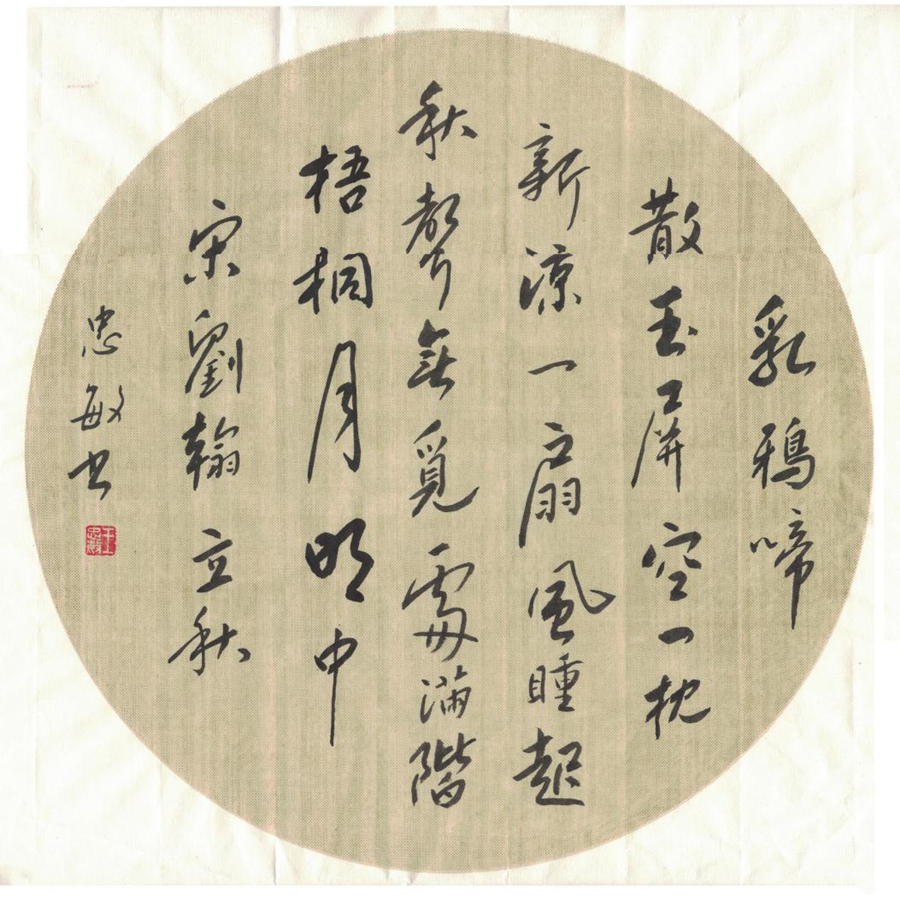 乳鴉啼
散玉屏空一枕
新涼一扇風睡起
秋聲無覓處滿階
梧桐月明中
宋劉翰立秋
忠敏書